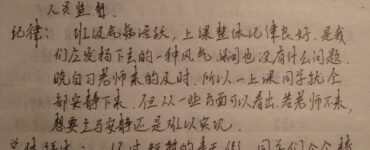 人员监督。
纪律：班级气氛活跃，上课整体纪律良好，是我
们应发扬下去的一种风气，课间也没有什么问题，
晚自习老师来的及时，所以一上课同学就全
部安静下来，但从一些方面可以看出，若老师不来，
想要主动安静还是难以实现。